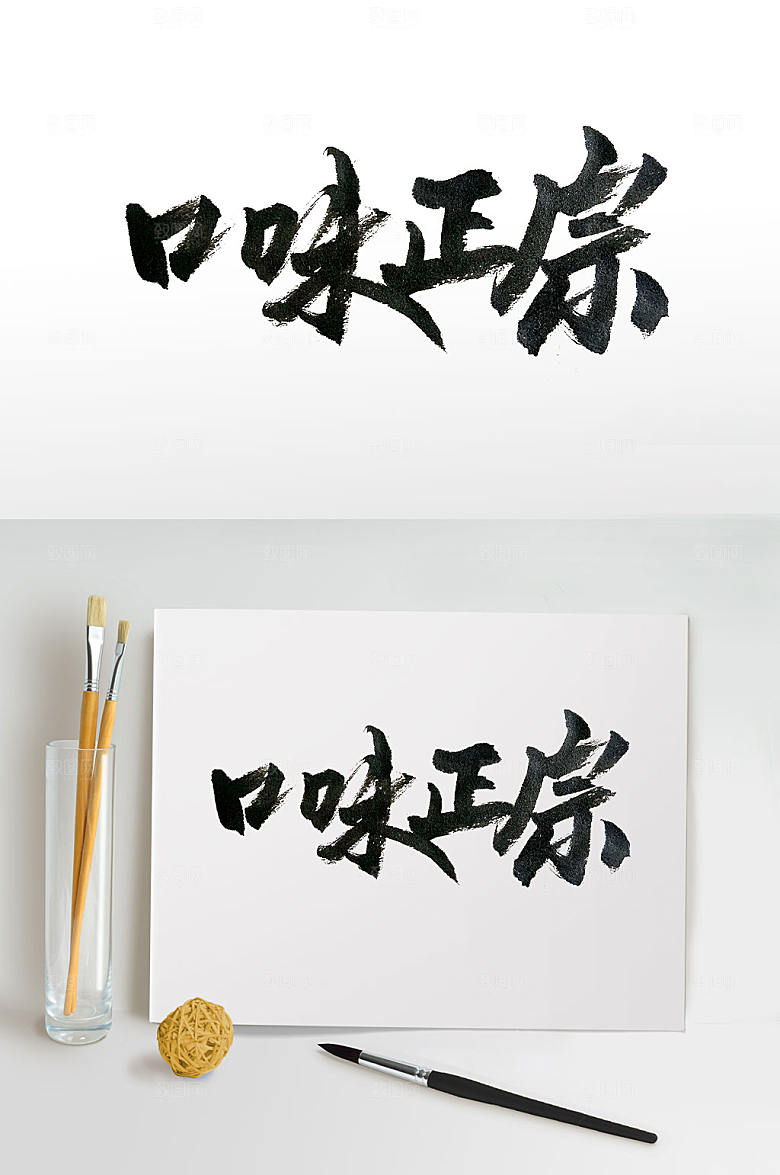 口味正宗
口味正宗